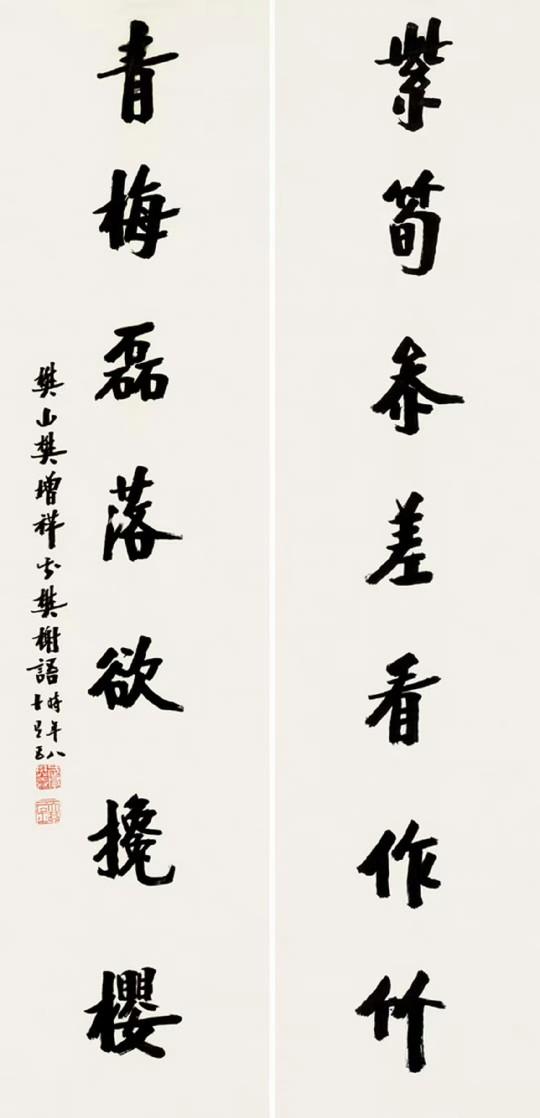 紫筍參差看作竹
青梅磊落欲攙櫻
樊山樊增祥書樊榭語
時年八
十五